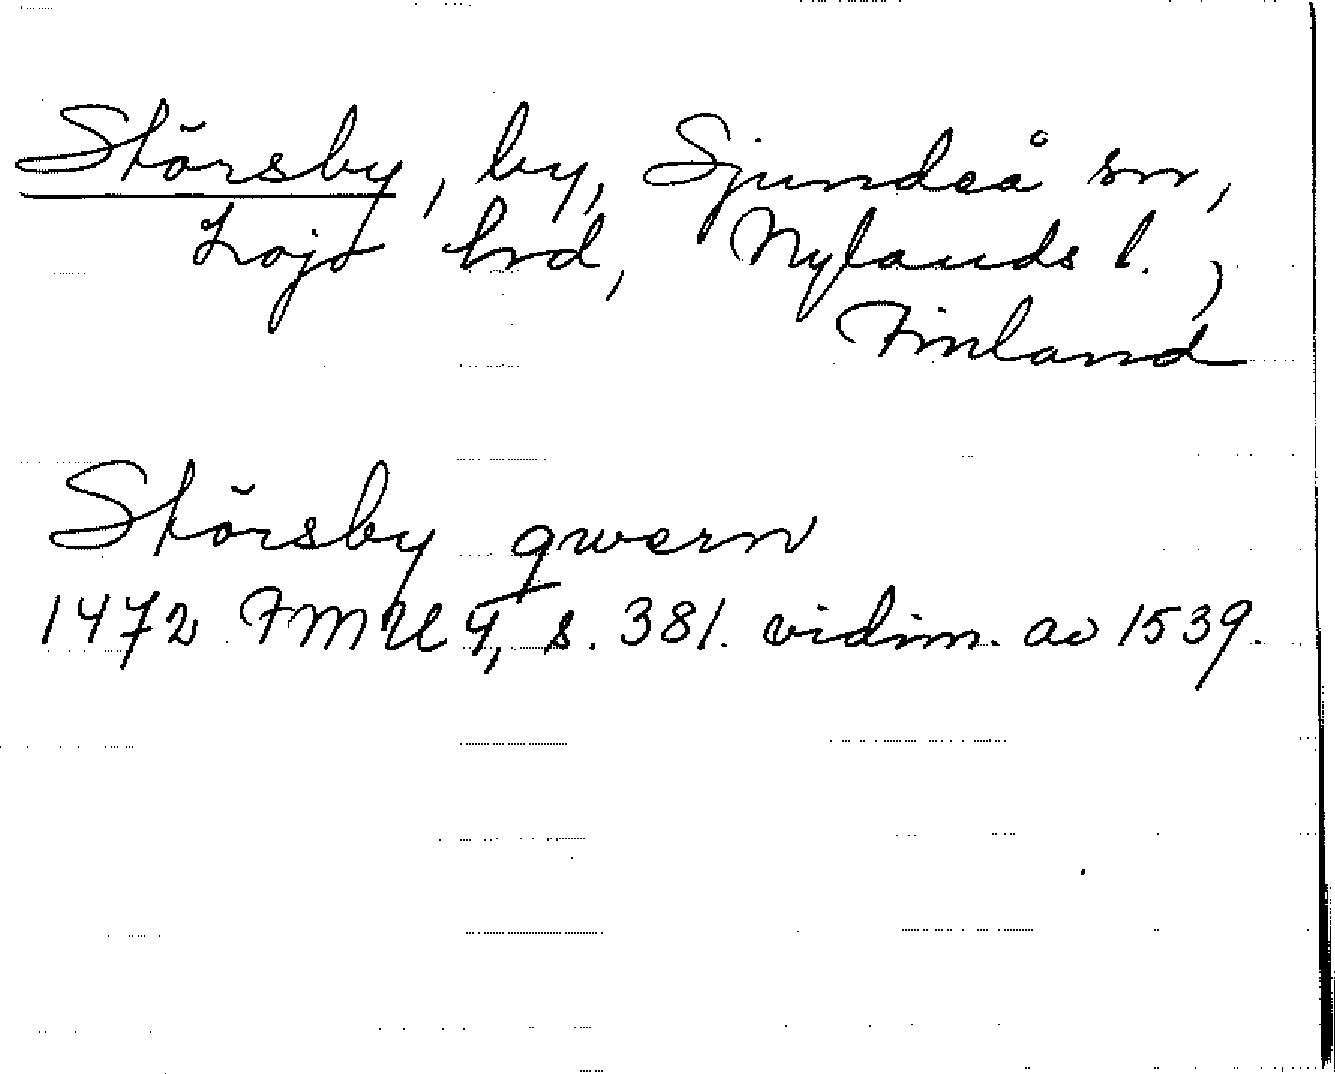 Störsby, by, Sjundeå sn,
Lojo hrd, Nylands l.,
Finland
Störsby qwern
1472 FMU 4, s. 381. vidim. av 1539.